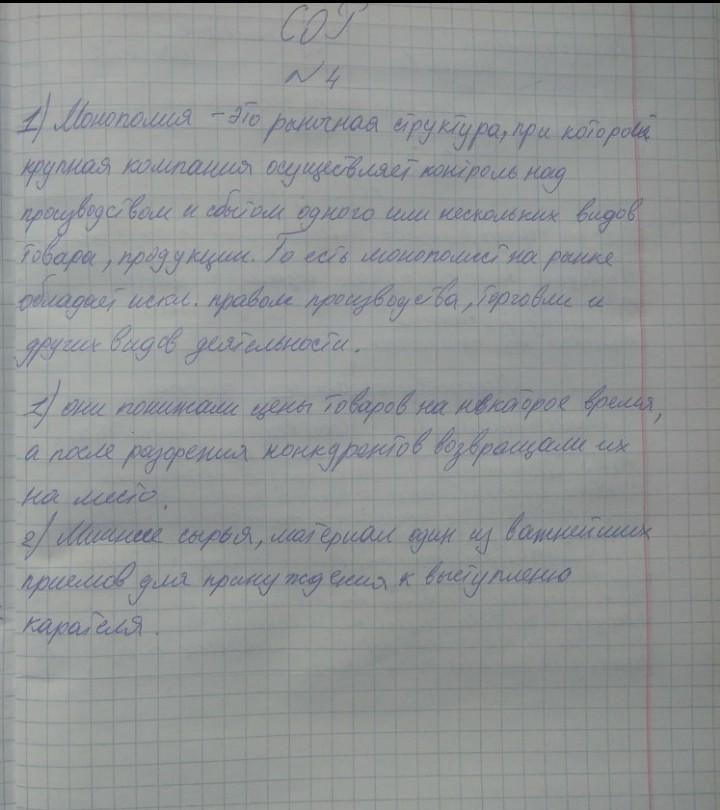 СОР
№ 4
1) Монополия - это рыночная структура, при которой
крупная компания осуществляет контроль над
производством и сбытом одного или нескольких видов
товара, продукции. То есть монополист на рынке
обладает искл. правом производства, торговли и
других видов деятельности.
1) они понижали цены товаров на некоторое время,
а после разорения конкурентов возвращали их
на место.
2) сырья, материал один из важнейших
приемов для принуждения к выступлению
карателя.